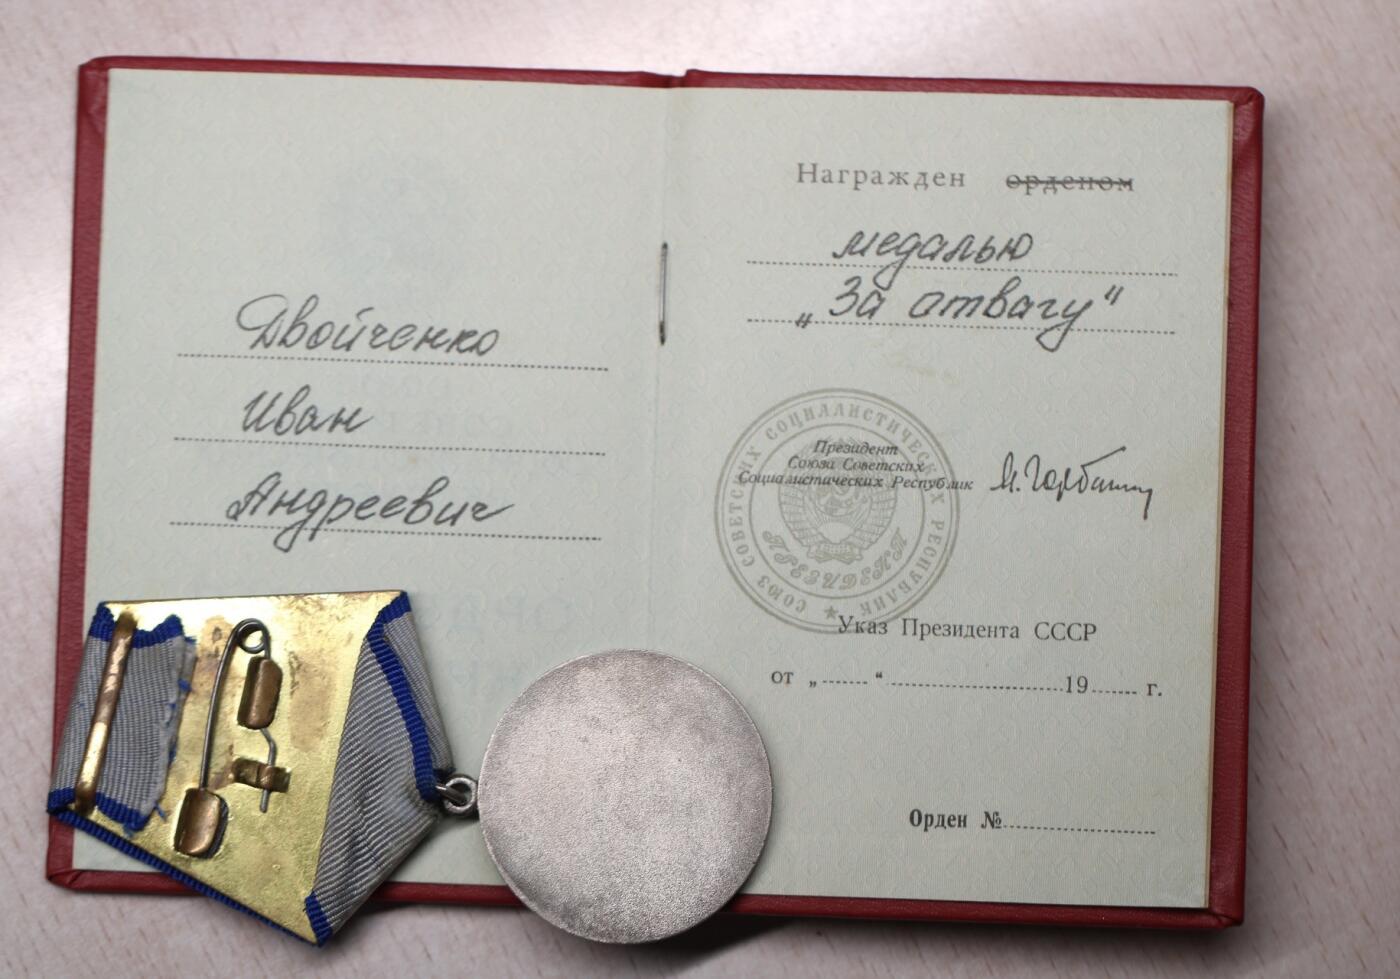 Двойченко
Иван
Андреевич
Награжден орденом
медалью
„За отвагу“
СОЮЗ СОВЕТСКИХ СОЦИАЛИСТИЧЕСКИХ РЕСПУБЛИК
Президент
Союза Советских
Социалистических Республик
М. Горбачев
ПРЕЗИДЕНТ
Указ Президента СССР
от „ “ 19 г.
Орден №